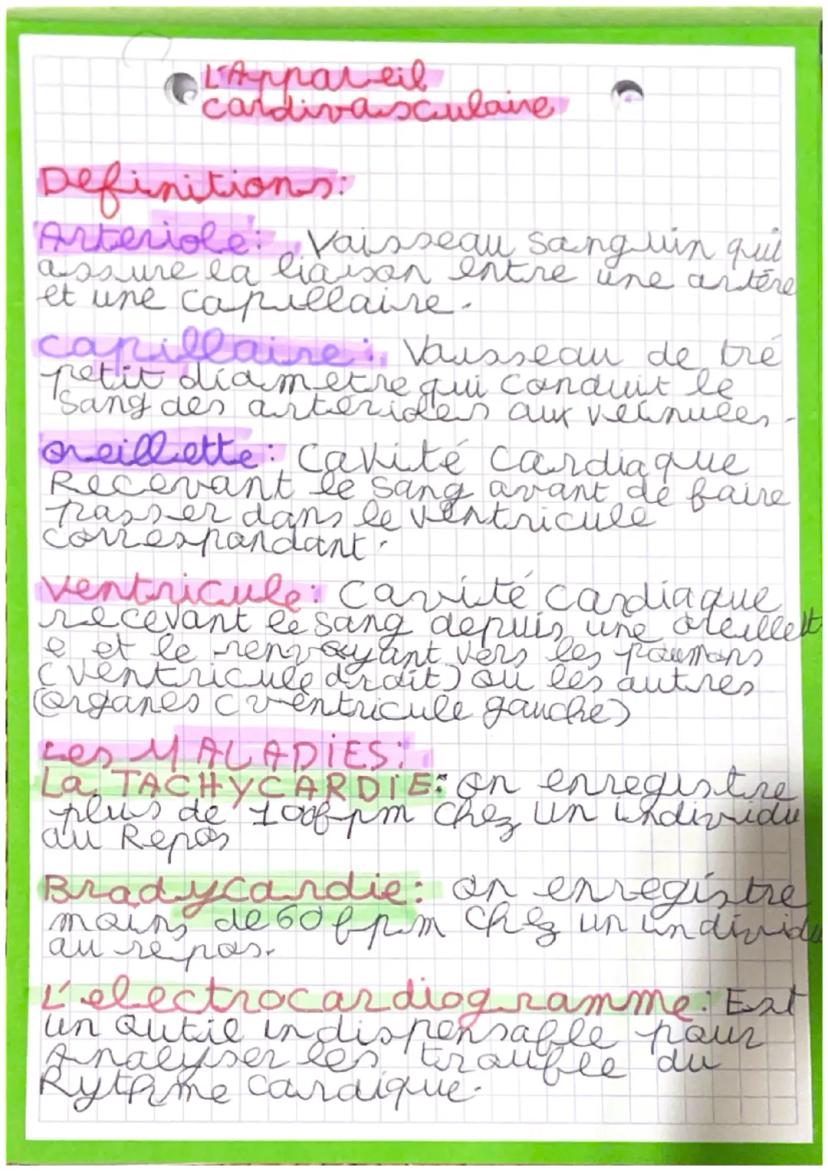 L'Appareil
cardivasculaire
Definitions:
Arteriole: Vaisseau sanguin qui
assure la liaison entre une artère
et une capillaire.
capillaire: Vaisseau de tré
petit diametre qui conduit le
sang des artérioles aux veinules.
oreillette: Cavité cardiaque
Recevant le sang avant de faire
passer dans le ventricule
correspondant.
Ventricule: Cavité cardiaque
recevant le sang depuis une oreillett
e et le renvoyant vers les poumons
(ventricule droit) ou les autres
organes (ventricule gauche)
Les MALADIES:
La TACHYCARDIE: on enregistre
plus de 100bpm chez un individu
au Repos
Bradycardie: on enregistre
moins de 60 bpm chez un individu
au repos.
L'electrocardiogramme: Est
un outil indispensable pour
Analyser les trouble du
Rythme cardique.